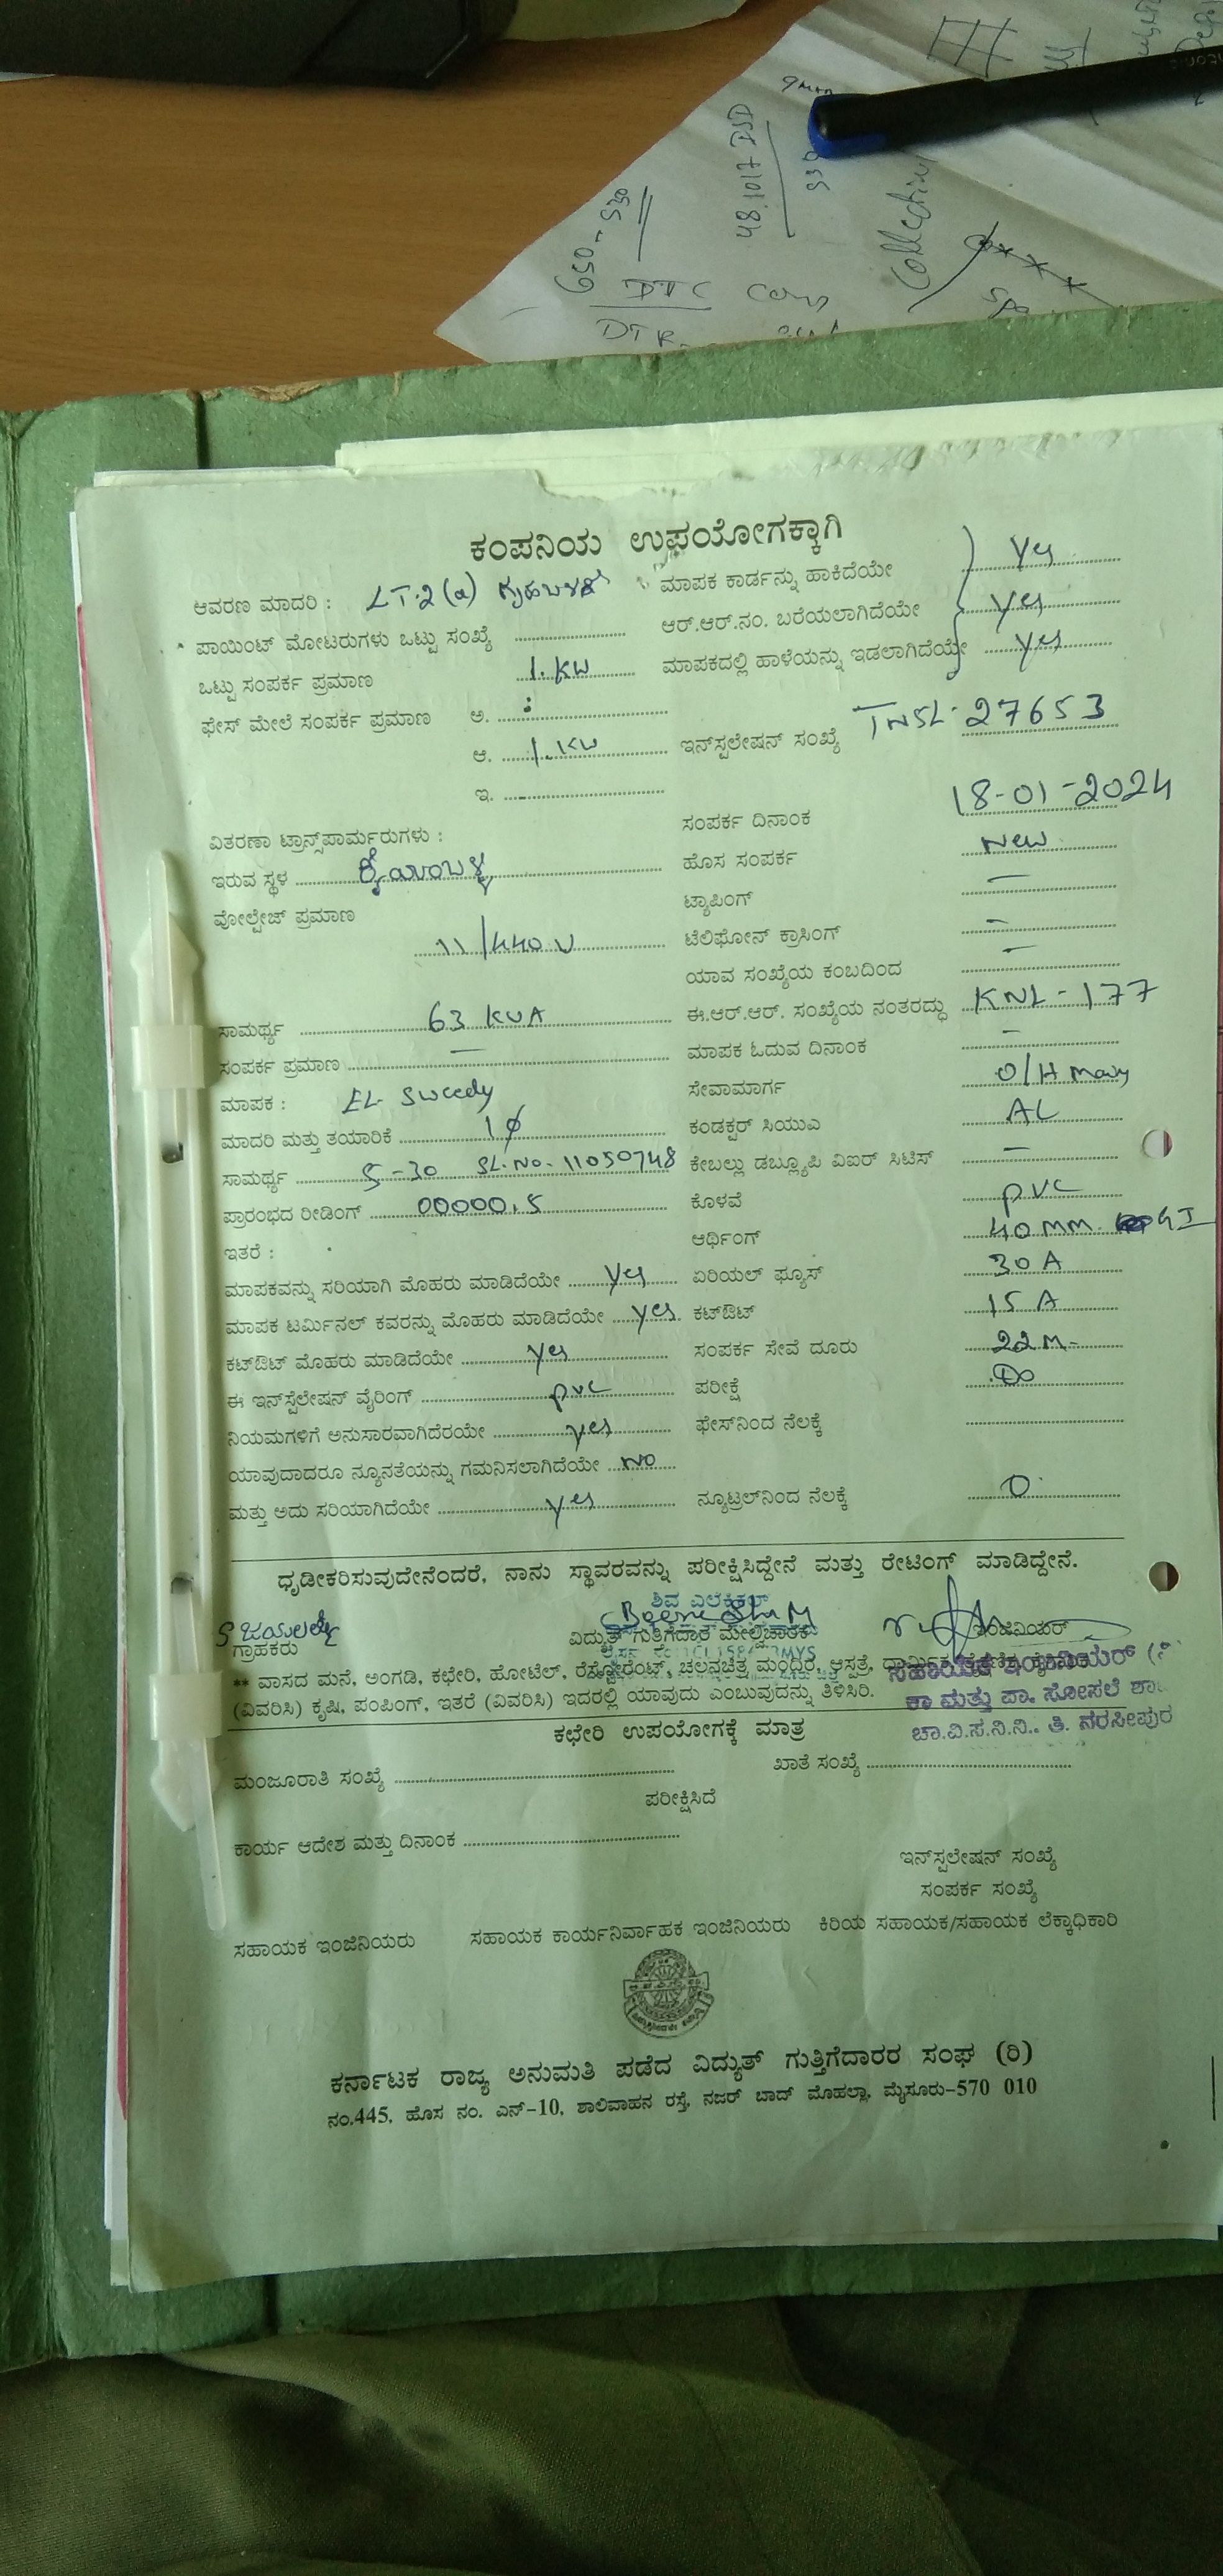 650-530
48.1017 DSI
Collection
DTC
DTR
ಕಂಪನಿಯ ಉಪಯೋಗಕ್ಕಾಗಿ
ಆವರಣ ಮಾದರಿ : LT-2(a) ಗೃಹಬಳಕೆ
ಮಾಪಕ ಕಾರ್ಡನ್ನು ಹಾಕಿದೆಯೇ Yes
ಪಾಯಿಂಟ್ ಮೋಟರುಗಳು ಒಟ್ಟು ಸಂಖ್ಯೆ
ಆರ್.ಆರ್.ನಂ. ಬರೆಯಲಾಗಿದೆಯೇ Yes
ಒಟ್ಟು ಸಂಪರ್ಕ ಪ್ರಮಾಣ 1.KW
ಮಾಪಕದಲ್ಲಿ ಹಾಳೆಯನ್ನು ಇಡಲಾಗಿದೆಯೇ Yes
ಫೇಸ್ ಮೇಲೆ ಸಂಪರ್ಕ ಪ್ರಮಾಣ ಅ.
ಆ. 1.KW
ಇನ್‌ಸ್ಟಲೇಷನ್ ಸಂಖ್ಯೆ TNSL-27653
ಇ. -
ಸಂಪರ್ಕ ದಿನಾಂಕ 18-01-2024
ವಿತರಣಾ ಟ್ರಾನ್ಸ್‌ಪಾರ್ಮರುಗಳು :
ಹೊಸ ಸಂಪರ್ಕ New
ಇರುವ ಸ್ಥಳ
ಟ್ಯಾಪಿಂಗ್ –
ವೋಲ್ಟೇಜ್ ಪ್ರಮಾಣ
11/440 V
ಟೆಲಿಫೋನ್ ಕ್ರಾಸಿಂಗ್ –
ಯಾವ ಸಂಖ್ಯೆಯ ಕಂಬದಿಂದ –
ಸಾಮರ್ಥ್ಯ 63 KVA
ಈ.ಆರ್.ಆರ್. ಸಂಖ್ಯೆಯ ನಂತರದ್ದು KNL-177
ಸಂಪರ್ಕ ಪ್ರಮಾಣ –
ಮಾಪಕ ಓದುವ ದಿನಾಂಕ –
ಮಾಪಕ : EL Sweedy
ಸೇವಾಮಾರ್ಗ O/H
ಮಾದರಿ ಮತ್ತು ತಯಾರಿಕೆ 1ϕ
ಕಂಡಕ್ಟರ್ ಸಿಯುಎ AL
ಸಾಮರ್ಥ್ಯ 5-30 SL.No-11050748
ಕೇಬಲ್ಲು ಡಬ್ಲ್ಯೂಪಿ ವಿಐರ್ ಸಿಟಿಸ್ –
ಪ್ರಾರಂಭದ ರೀಡಿಂಗ್ 00000.5
ಕೊಳವೆ PVC
ಇತರೆ :
ಆರ್ಥಿಂಗ್ 40 MM GI
ಮಾಪಕವನ್ನು ಸರಿಯಾಗಿ ಮೊಹರು ಮಾಡಿದೆಯೇ Yes
ಏರಿಯಲ್ ಫ್ಯೂಸ್ 30 A
ಮಾಪಕ ಟರ್ಮಿನಲ್ ಕವರನ್ನು ಮೊಹರು ಮಾಡಿದೆಯೇ yes
ಕಟ್‌ಔಟ್ 15 A
ಕಟ್‌ಔಟ್ ಮೊಹರು ಮಾಡಿದೆಯೇ yes
ಸಂಪರ್ಕ ಸೇವೆ ದೂರು 22 M-
ಈ ಇನ್‌ಸ್ಟೆಲೇಷನ್ ವೈರಿಂಗ್ pvc
ಪರೀಕ್ಷೆ
ನಿಯಮಗಳಿಗೆ ಅನುಸಾರವಾಗಿದೆರಯೇ yes
ಫೇಸ್‌ನಿಂದ ನೆಲಕ್ಕೆ
ಯಾವುದಾದರೂ ನ್ಯೂನತೆಯನ್ನು ಗಮನಿಸಲಾಗಿದೆಯೇ No
ಮತ್ತು ಅದು ಸರಿಯಾಗಿದೆಯೇ yes
ನ್ಯೂಟ್ರಲ್‌ನಿಂದ ನೆಲಕ್ಕೆ 0
ಧೃಡೀಕರಿಸುವುದೇನೆಂದರೆ, ನಾನು ಸ್ಥಾವರವನ್ನು ಪರೀಕ್ಷಿಸಿದ್ದೇನೆ ಮತ್ತು ರೇಟಿಂಗ್ ಮಾಡಿದ್ದೇನೆ.
ಶಿವ ಎಲೆಕ್ಟ್ರಿಕಲ್ಸ್
ಗ್ರಾಹಕರು
ವಿದ್ಯುತ್ ಗುತ್ತಿಗೆದಾರ ಮೇಲ್ವಿಚಾರಕ
ಇಂಜಿನಿಯರ್
** ವಾಸದ ಮನೆ, ಅಂಗಡಿ, ಕಛೇರಿ, ಹೋಟೆಲ್, ರೆಸ್ಟೋರೆಂಟ್, ಚಲನಚಿತ್ರ ಮಂದಿರ, ಆಸ್ಪತ್ರೆ, ಧಾರ್ಮಿಕ
ಸಹಾಯಕ ಇಂಜಿನಿಯರ್
(ವಿವರಿಸಿ) ಕೃಷಿ, ಪಂಪಿಂಗ್, ಇತರೆ (ವಿವರಿಸಿ) ಇದರಲ್ಲಿ ಯಾವುದು ಎಂಬುವುದನ್ನು ತಿಳಿಸಿರಿ.
ಕಾ ಮತ್ತು ಪಾ. ಸೋಸಲೆ ಶಾ
ಚಾ.ವಿ.ಸ.ನಿ.ನಿ.. ತಿ. ನರಸೀಪುರ
ಕಛೇರಿ ಉಪಯೋಗಕ್ಕೆ ಮಾತ್ರ
ಮಂಜೂರಾತಿ ಸಂಖ್ಯೆ
ಖಾತೆ ಸಂಖ್ಯೆ
ಪರೀಕ್ಷಿಸಿದೆ
ಕಾರ್ಯ ಆದೇಶ ಮತ್ತು ದಿನಾಂಕ
ಇನ್‌ಸ್ಟಲೇಷನ್ ಸಂಖ್ಯೆ
ಸಂಪರ್ಕ ಸಂಖ್ಯೆ
ಸಹಾಯಕ ಇಂಜಿನಿಯರು
ಸಹಾಯಕ ಕಾರ್ಯನಿರ್ವಾಹಕ ಇಂಜಿನಿಯರು
ಕಿರಿಯ ಸಹಾಯಕ/ಸಹಾಯಕ ಲೆಕ್ಕಾಧಿಕಾರಿ
ಕರ್ನಾಟಕ ರಾಜ್ಯ ಅನುಮತಿ ಪಡೆದ ವಿದ್ಯುತ್ ಗುತ್ತಿಗೆದಾರರ ಸಂಘ (ರಿ)
ನಂ.445, ಹೊಸ ನಂ. ಎನ್-10, ಶಾಲಿವಾಹನ ರಸ್ತೆ, ನಜರ್ ಬಾದ್ ಮೊಹಲ್ಲಾ, ಮೈಸೂರು-570 010